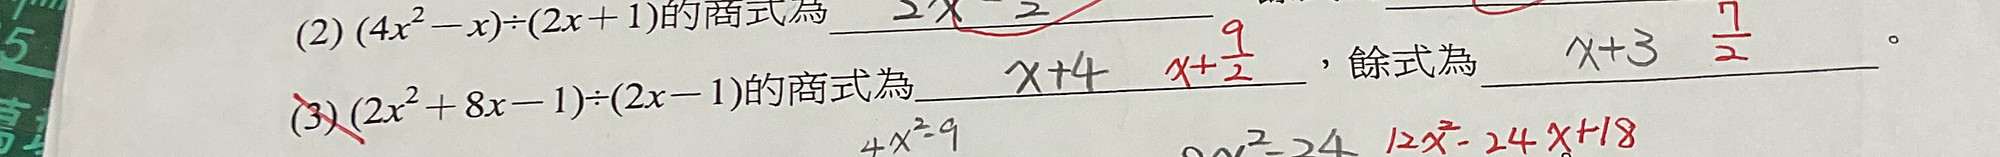 (2) (4x²－x)÷(2x＋1)的商式為
(3) (2x²＋8x－1)÷(2x－1)的商式為 x+4 x+9/2 ，餘式為 x+3 7/2 。
4x²-9 12x²-24x+18